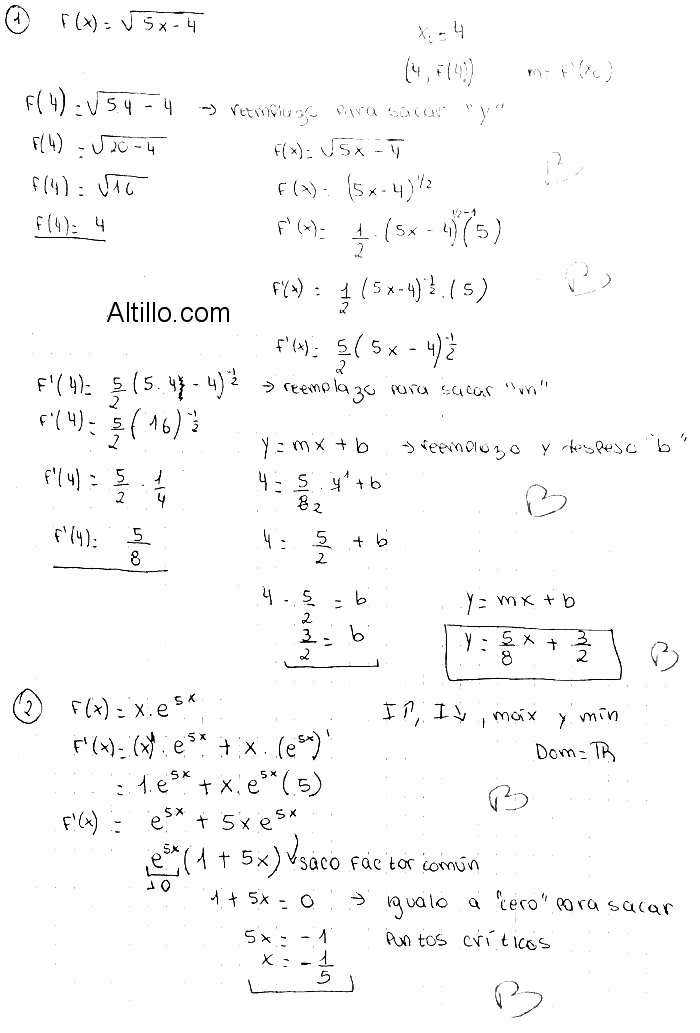 1 F(x) = √5x - 4
x₀ = 4
(4, F(4)) m = F'(x₀)
F(4) = √5.4 - 4 → reemplazo para sacar "y"
F(4) = √20 - 4
F(4) = √16
F(4) = 4
F(x) = √5x - 4
F(x) = (5x - 4)^1/2
F'(x) = 1/2 . (5x - 4)^1/2-1 (5)
F'(x) = 1/2 (5x - 4)^-1/2 . (5)
F'(x) = 5/2 (5x - 4)^-1/2
Altillo.com
F'(4) = 5/2 (5.4 - 4)^-1/2 → reemplazo para sacar "m"
F'(4) = 5/2 (16)^-1/2
F'(4) = 5/2 . 1/4
F'(4) = 5/8
y = mx + b → reemplazo y despejo "b"
4 = 5/8₂ . 4¹ + b
4 = 5/2 + b
4 - 5/2 = b
3/2 = b
B
y = mx + b
y = 5/8 x + 3/2
B
2 F(x) = x.e^5x
I↑, I↓, máx y mín
Dom = ℝ
F'(x) = (x)' . e^5x + x . (e^5x)'
= 1.e^5x + x.e^5x (5)
B
F'(x) = e^5x + 5x e^5x
e^5x (1 + 5x) saco factor común
≠0
1 + 5x = 0 → igualo a "cero" para sacar
puntos críticos
5x = -1
x = -1/5
B